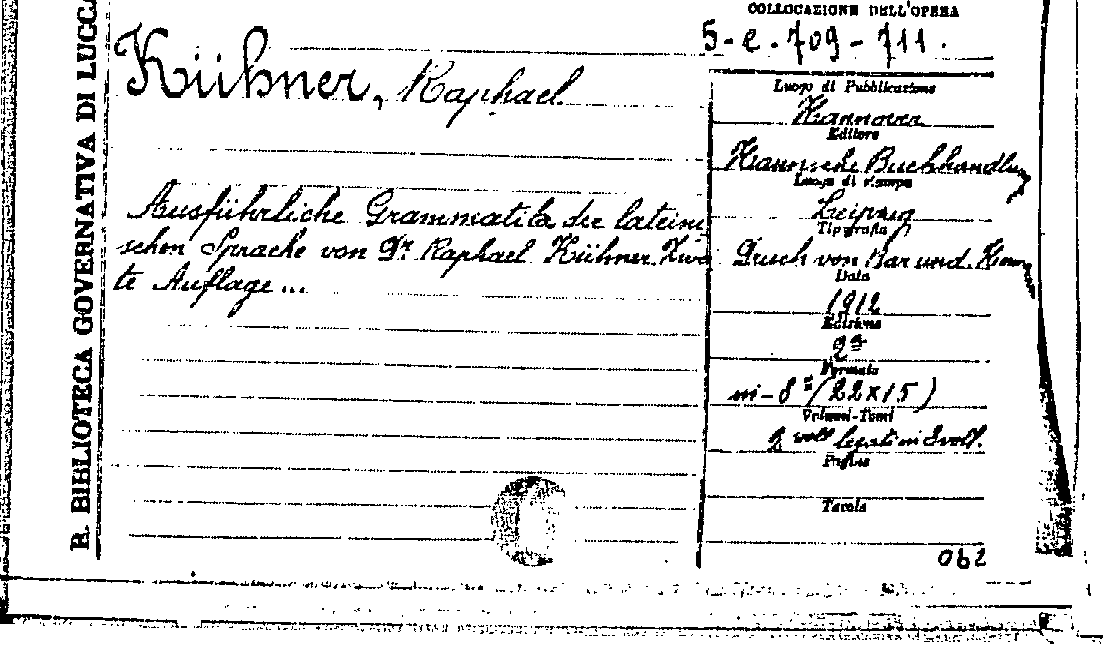 R. BIBLIOTECA GOVERNATIVA DI LUCCA
COLLOCAZIONE DELL'OPERA
5-e-709-711.
Kühner, Raphael
Ausführliche Grammatik der lateini
schen Sprache von Dr Raphael Kühner. Zwei
te Auflage...
Luogo di Pubblicazione
Hannover
Editore
Hahnsche Buchhandlung
Luogo di stampa
Leipzig
Tipografia
Druck von Bär und
Data
1912
Edizione
2a
Formato
in-8°(22x15)
Volumi-Tomi
2 voll legati in 3 voll.
Pagine
Tavole
062